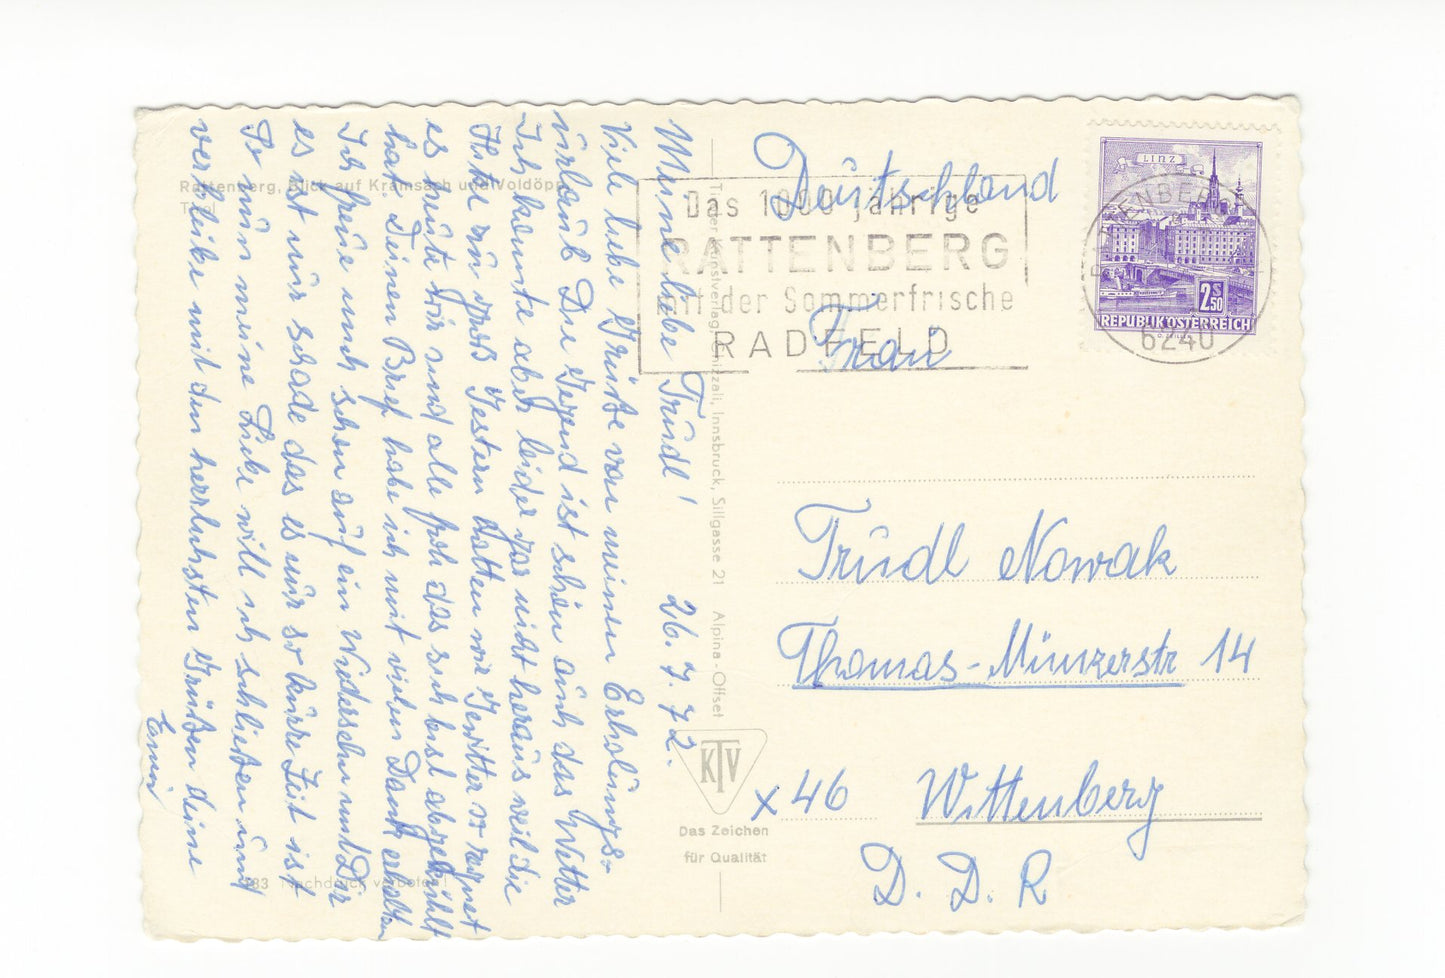 Rattenberg, Blick auf Kramsach und Voldöpp
Meine liebe Trudl! 26. 7. 72.
Viele liebe Grüße von meinem Erholungs-
urlaub. Die Gegend ist schön auch das Wetter
Ich konnte aber leider gar nicht heraus weil die
Hitze zu groß. Gestern hatten wir Gewitter so regnet
es heute wir sind alle froh das es sich best abgekühlt
hat. Deinen Brief habe ich mit vielen Dank erhalten
Ich freue mich schon auf ein Wiedersehn mit Dir
es ist nur schade das es nur so kurze Zeit ist
So nun meine Liebe will ich schließen und
verbleibe mit den herzlichsten Grüßen deine
Emmi
183 Nachdruck verboten!
Tiroler Kunstverlag Chizzali, Innsbruck, Sillgasse 21 Alpina-Offset
KTV
Das Zeichen
für Qualität
Das 1000 jährige
RATTENBERG
mit der Sommerfrische
RADFELD
LINZ
2S50
REPUBLIK ÖSTERREICH
RATTENBERG
6240
Deutschland
Frau
Trudl Nowak
Thomas-Münzerstr 14
x 46 Wittenberg
D. D. R